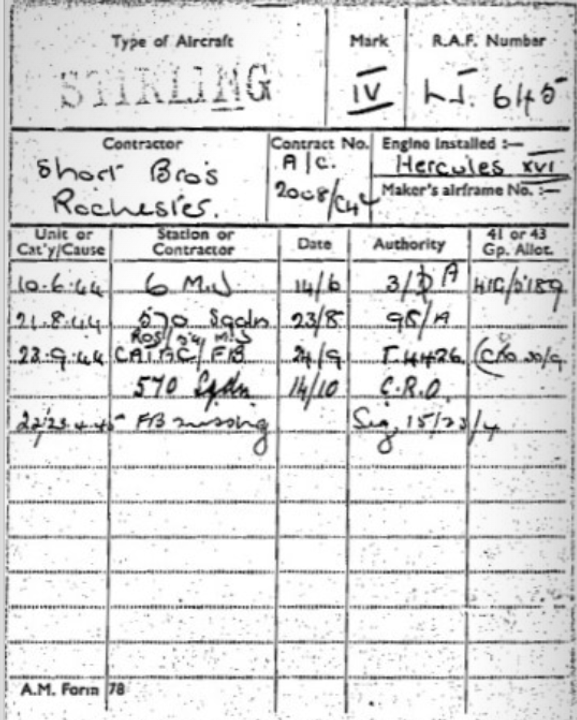 Type of Aircraft Mark R.A.F. Number
STIRLING IV LJ. 645
Contractor Contract No. Engine Installed :—
Short Bros A/C. Hercules XVI
Rochester. 2008/C4 Maker's airframe No. :—
Unit or Cat'y/Cause Station or Contractor Date Authority 41 or 43 Gp. Allot.
10.6.44 6 M.U 14/6 3/ A
21.8.44 570 Sqdn 23/8 98/A
ROS/ M.U
23.9.44 CAT AC/FB 24/9 (CRO 30/9
570 Sqdn 14/10 C.R.O.
22/23.4.45 FB missing Sig, 15/23/4
A.M. Form 78